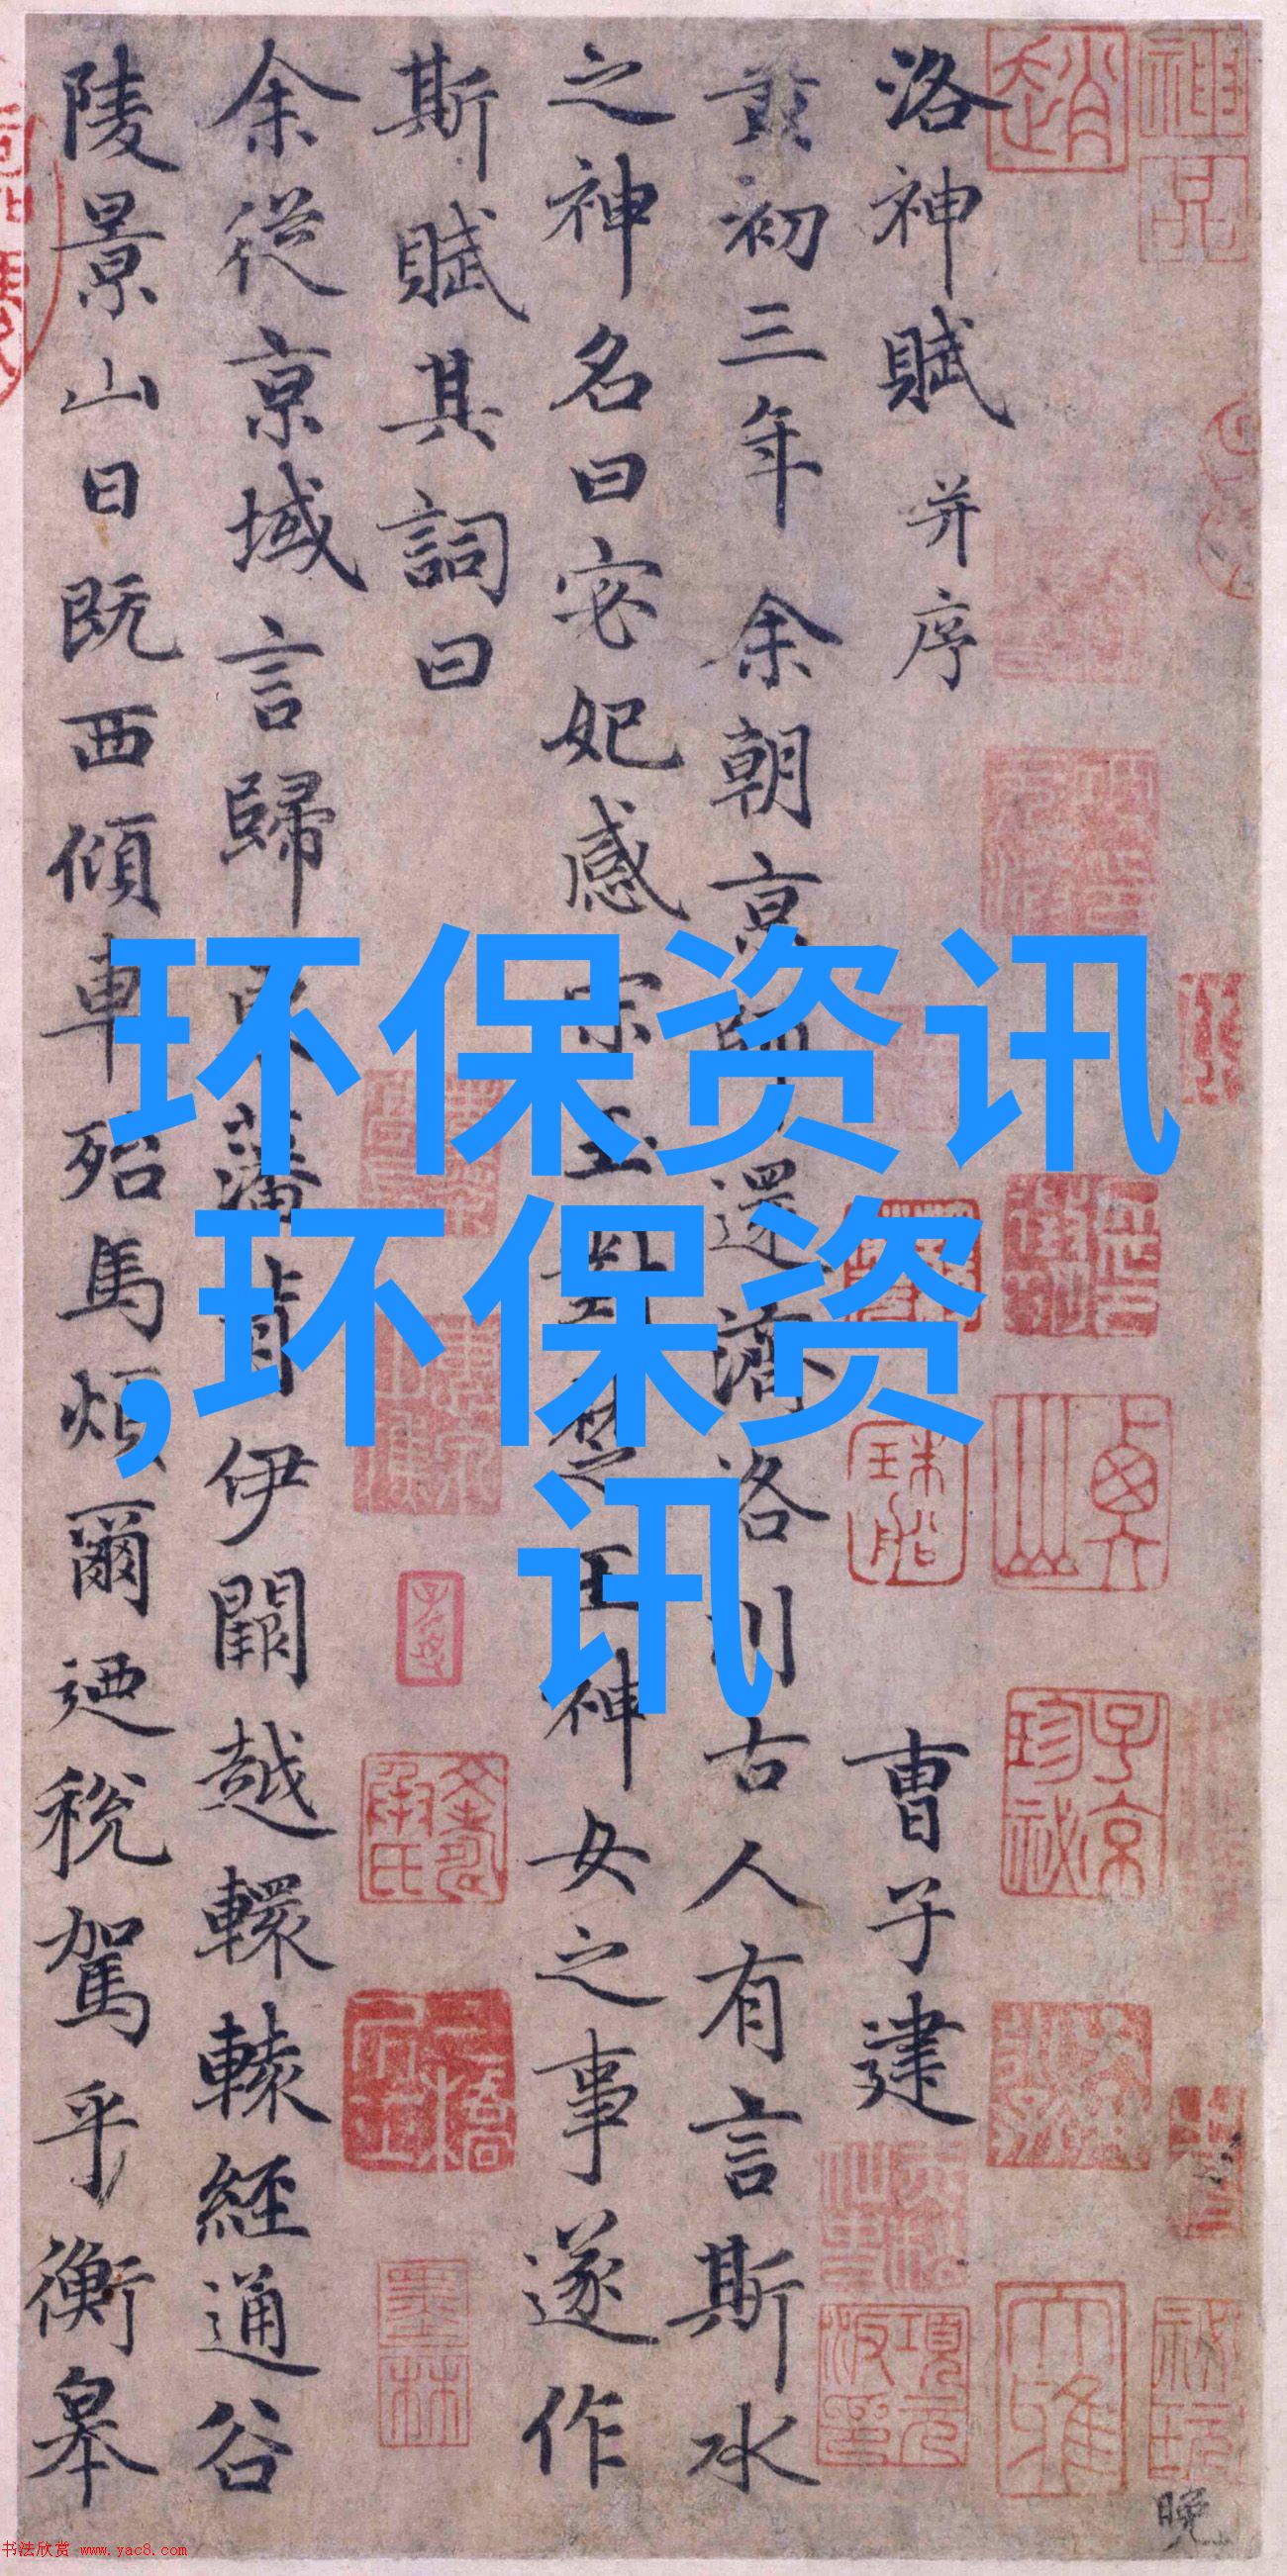 环保资讯
,环保资
讯
洛神賦 并序 曹子建
黃初三年余朝京師還濟洛川古人有言斯水
之神名曰宓妃感宋玉對楚王神女之事遂作
斯賦其詞曰
余從京域言歸東藩背伊闕越轘轅經通谷
陵景山日既西傾車殆馬煩爾迺稅駕乎衡皋
趙
神品
墨林
晚
书法欣赏 www.yac8.com